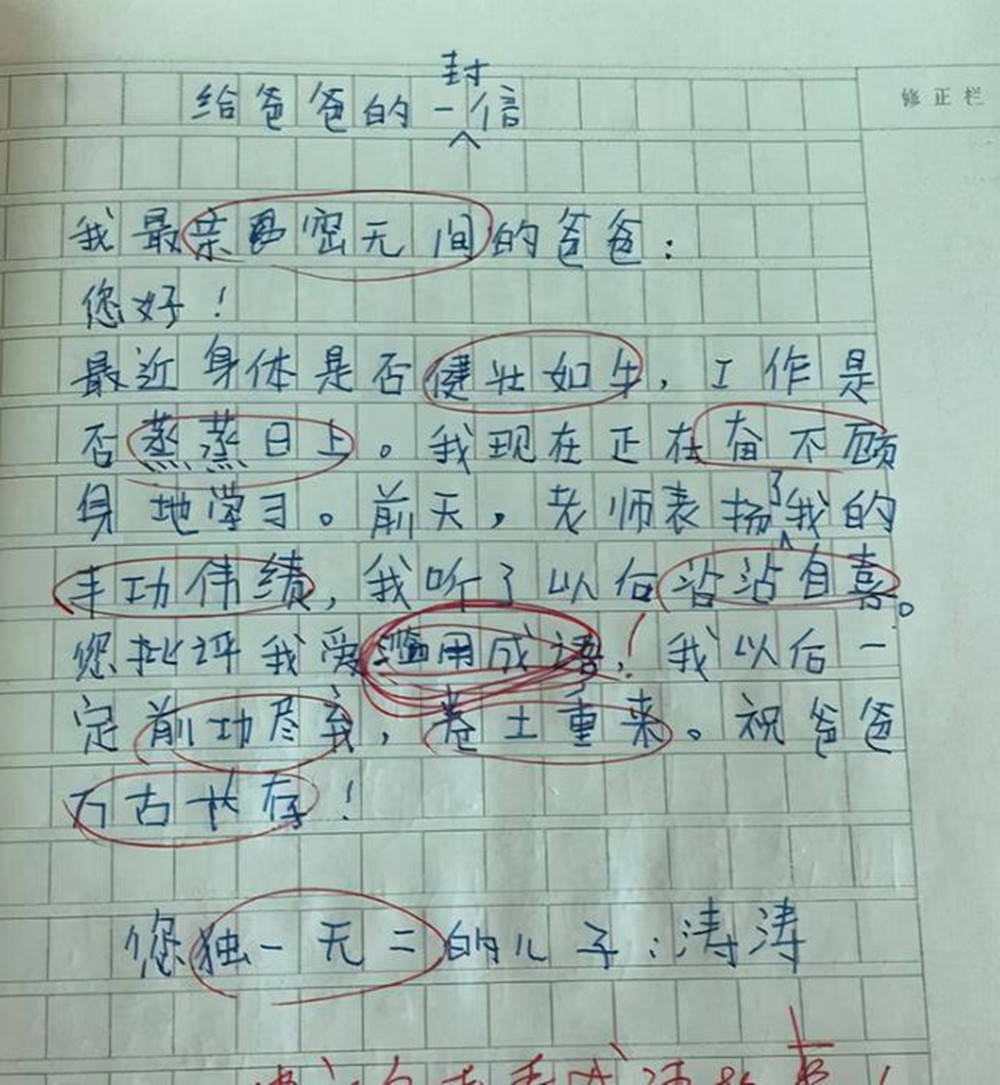 修正栏
给爸爸的一封信
我最亲密无间的爸爸：
您好！
最近身体是否健壮如牛，工作是
否蒸蒸日上。我现在正在奋不顾
身地学习。前天，老师表扬了我的
丰功伟绩，我听了以后沾沾自喜。
您批评我爱滥用成语！我以后一
定前功尽弃，卷土重来。祝爸爸
万古长存！
您独一无二的儿子：涛涛